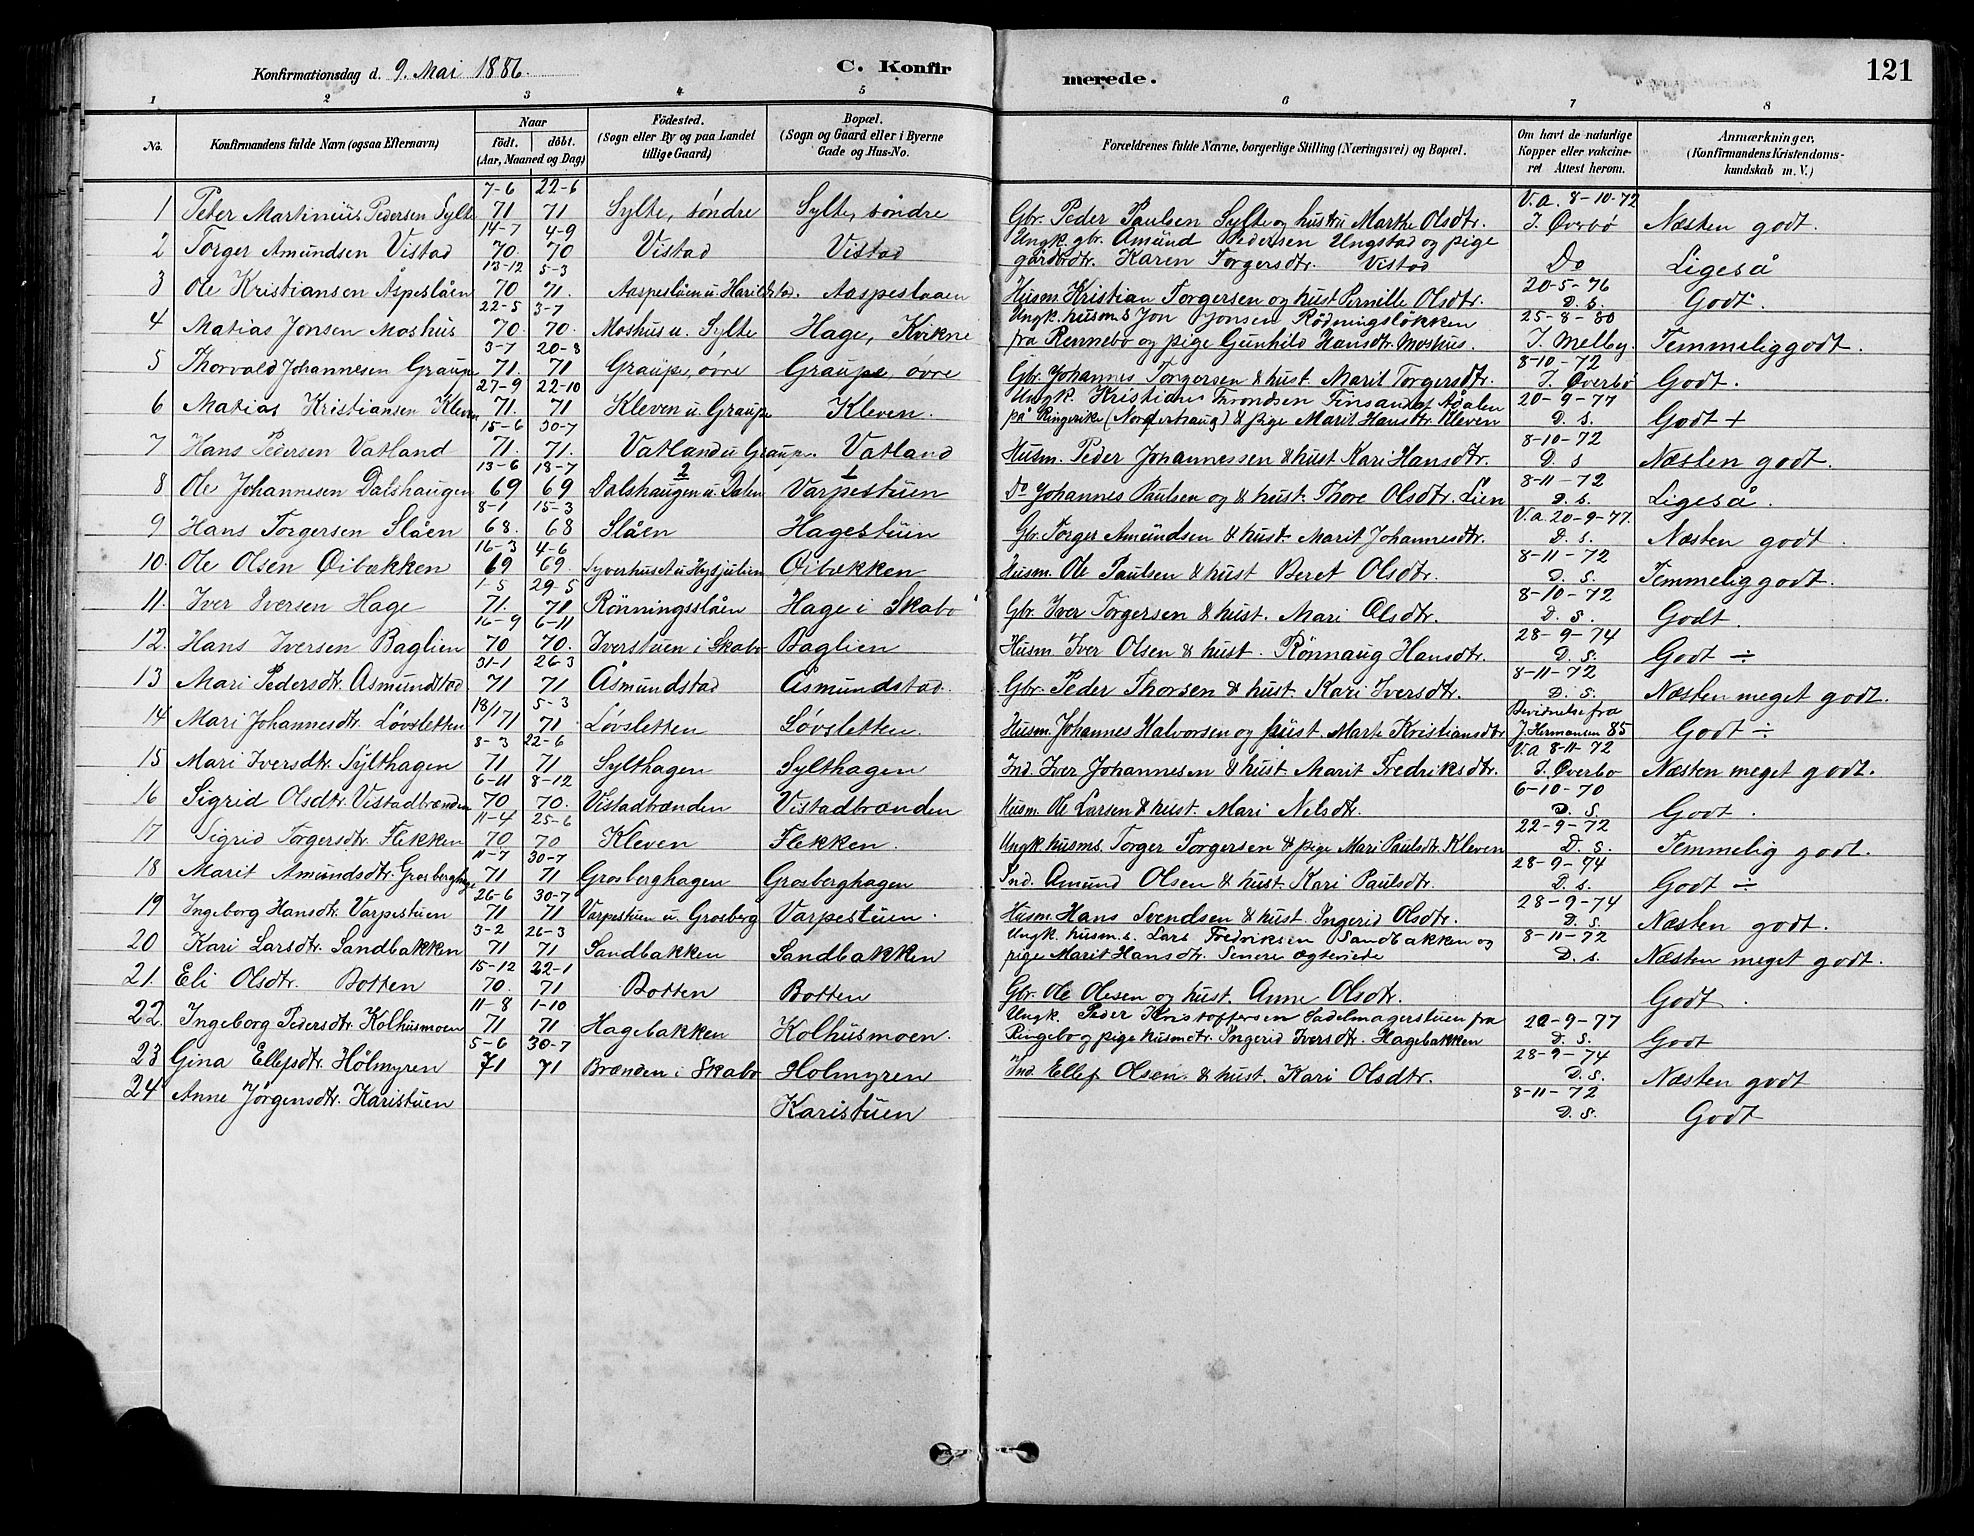 Konfirmationsdag d. 9. Mai 1886.
C. Konfirmerede.
121
1 2 3 4 5 6 7 8
No. Konfirmandens fulde Navn (ogsaa Efternavn) Naar født. døbt. (Aar, Maaned og Dag) Fødested. (Sogn eller By og paa Landet tillige Gaard) Bopæl. (Sogn og Gaard eller i Byerne Gade og Hus-No. Forældrenes fulde Navne, borgerlige Stilling (Næringsvei) og Bopæl. Om havt de naturlige Kopper eller vakcineret Attest herom. Anmærkninger, (Konfirmandens Kristendomskundskab m. V.)
1 Peter Martinius Pedersen Sylte 7-6 71 22-6 71 Sylte, söndre Sylte, söndre Gbr. Peder Paulsen Sylte og hustru Marthe Olsdtr. V.a. 8-10-72 J. Øverbö Næsten godt.
2 Torger Amundsen Vistad 14-7 70. 4-9 70 Vistad Vistad Ungk. gbr. Amund Pedersen Ungstad og pige gårdbrdtr. Karen Torgersdtr. Vistad Do Ligeså
3 Ole Kristiansen Åspeslåen 13-12 70 5-3 71. Aaspeslåen u. Harildstad. Aaspeslaaen Husm. Kristian Torgersen og hust Pernille Olsdtr. 20-5-76 D. S. Godt.
4 Matias Jonsen Moshus 22-5 70. 3-7 70. Moshus u. Sylte Hage, Kvikne Ungk. husm.s Jon Jonsen Rödningslökken fra Rennebo og pige Gunhild Hansdtr. Moshus. 25-8-80 J. Melby. Temmelig godt.
5 Thorvald Johannesen Graupe 3-7 71. 20-8 71 Graupe, övre Graupe, övre Gbr. Johannes Torgersen & hust. Marit Torgersdtr. 8-10-72 J. Øverbö Godt.
6 Matias Kristiansen Kleven 27-9 71. 22-10 71 Kleven u. Graupe Kleven. Ungk. Kristian Trondsen Finsand af Ådalen på Ringerike (Norderhaug) & pige Marit Hansdtr. Kleven 20-9-77 D. S. Godt +
7 Hans Pedersen Vatland 15-6 71. 30-7 71. Vatland u. Graup. Vatland Husm. Peder Johannessen & hust Kari Hansdtr. 8-10-72 D. S Næsten godt.
8 Ole Johannesen Dalshaugen 13-6 69 18-7 69 2 Dalshaugen u. Dalen 1 Varpestuen Do Johannes Paulsen og & hust. Thore Olsdtr. Lien 8-11-72 D. S. Ligeså.
9 Hans Torgersen Slåen 8-1 68. 15-3 68 Slåen Hagestuen Gbr. Torger Amundsen & hust. Marit Johannesdtr. V.a. 20-9-77. D. S. Næsten godt.
10. Ole Olsen Øibækken 16-3 69 4-6 69. Syverhuset u. Øibækken Husm. Ole Paulsen & hust Beret Olsdtr. 8-11-72 D. S. Temmelig godt.
11. Iver Iversen Hage 1-5 71. 29-5 71 Rönningsslåen Hage i Skabo Gbr. Iver Torgersen & hust. Mari Olsdtr. 8-10-72 D. S. Godt.
12. Hans Iversen Baglien 16-9 70 6-11 70. Iverstuen i Skabo Baglien Husm. Iver Olsen & hust. Rönnaug Hansdtr. 28-9-74 D. S. Godt ÷
13 Mari Pedersdtr. Åsmundstad 31-1 71 26-3 71 Åsmundstad Åsmundstad. Gbr. Peder Thorsen & hust. Kari Iversdtr. 8-11-72 D. S. Næsten meget godt.
14 Mari Johannesdtr. Lövsletten 18/1 71 5-3 71. Lövsletten Lövsletten. Husm. Johannes Halvorsen og hust. Marte Kristiansdtr Bevidnelse fra J. Hermansen 85 Godt ÷
15 Mari Iversdtr. Sylthagen 8-3 71 22-6 71 Sylthagen Sylthagen Ind. Iver Johannesen & hust. Marit Fredriksdtr. V.a 8-11-72 J. Øverbo Næsten meget godt.
16 Sigrid Olsdtr. Vistadbrænden 6-11 70 8-12 70. Vistadbrænden Vistadbrænden Husm. Ole Larsen & hust. Mari Nelsdtr. 6-10-70 D. S Godt.
17 Sigrid Torgersdtr. Flekken 11-4 70 25-6 70 Kleven Flekken. Ungk. husms. Torger Torgersen & pige Mari Paulsdtr. Kleven 22-9-72 D. S. Temmelig godt.
18 Marit Amundsdtr. Grosberghage 11-7 71 30-7 71 Grosberghagen Grosberghagen Ind. Amund Olsen & hust. Kari Paulsdtr. 28-9-74 D. S. Godt ÷
19 Ingeborg Hansdtr. Varpestuen 26-6 71 30-7 71 Varpestuen u. Grosberg Varpestuen. Husm. Hans Svendsen & hust. Ingerid Olsdtr. 28-9-74 D. S. Næsten godt.
20 Kari Larsdtr. Sandbakken 3-2 71 26-3 71 Sandbakken Sandbakken Ungk. husm.s. Lars Fredriksen Sandbakken og pige Marit Hansdtr. Senere ægteviede 8-11-72 D. S. Næsten meget godt.
21. Eli Olsdtr. Botten 15-12 70. 22-1 71 Botten Botten Gbr. Ole Olesen og hust. Anne Olsdtr. Godt.
22. Ingeborg Pedersdtr. Kolhusmoen 11-8 71 1-10 71 Hagebakken Kolhusmoen. Ungk. Peder Kristoffersen Sadelmagerstuen fra Ringebo og pige husmdtr. Ingerid Iversdtr. Hagebakken 20-9-77 D. S. Godt
23 Gina Ellefsdtr. Holmyren 5-6 71 30-7 71 Brænden i Skabo Holmyren Ind. Ellef Olsen. & hust. Kari Olsdtr. 28-9-74 D. S. Næsten godt
24 Anne Jörgensdtr. Karistuen Karistuen 8-11-72 D. S. Godt